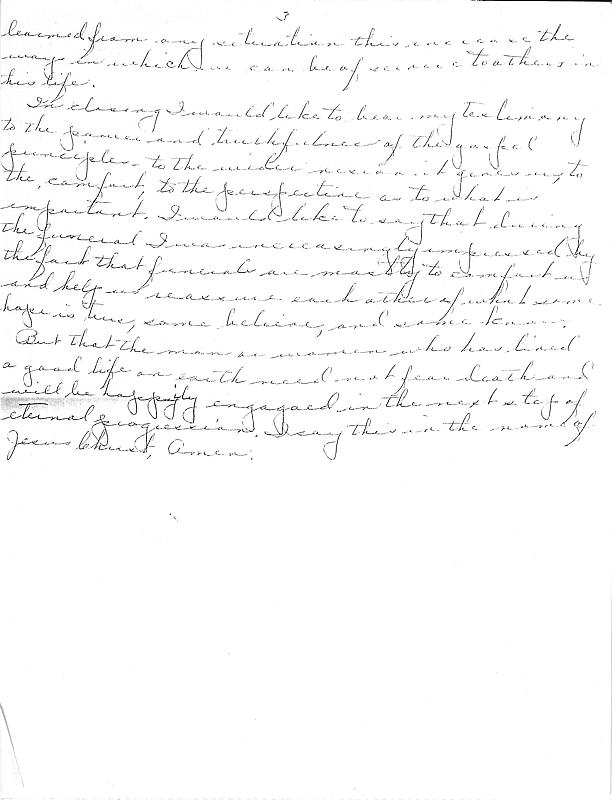 3
learned from any situation this increase the
ways in which we can be of service to others in
his life.
In closing I would like to bear my testimony
to the power and truthfulness of the gospel
principles - to the wider vision it gives us, to
the comfort, to the perspective as to what is
important. I would like to say that during
the funeral I was increasingly impressed by
the fact that funerals are mostly to comfort us
and help us reassure each other of what some
hope is true, some believe, and some know.
But that the man or women who has lived
a good life on earth need not fear death and
will be happily engaged in the next step of
eternal progression. I say this in the name of
Jesus Christ, Amen.